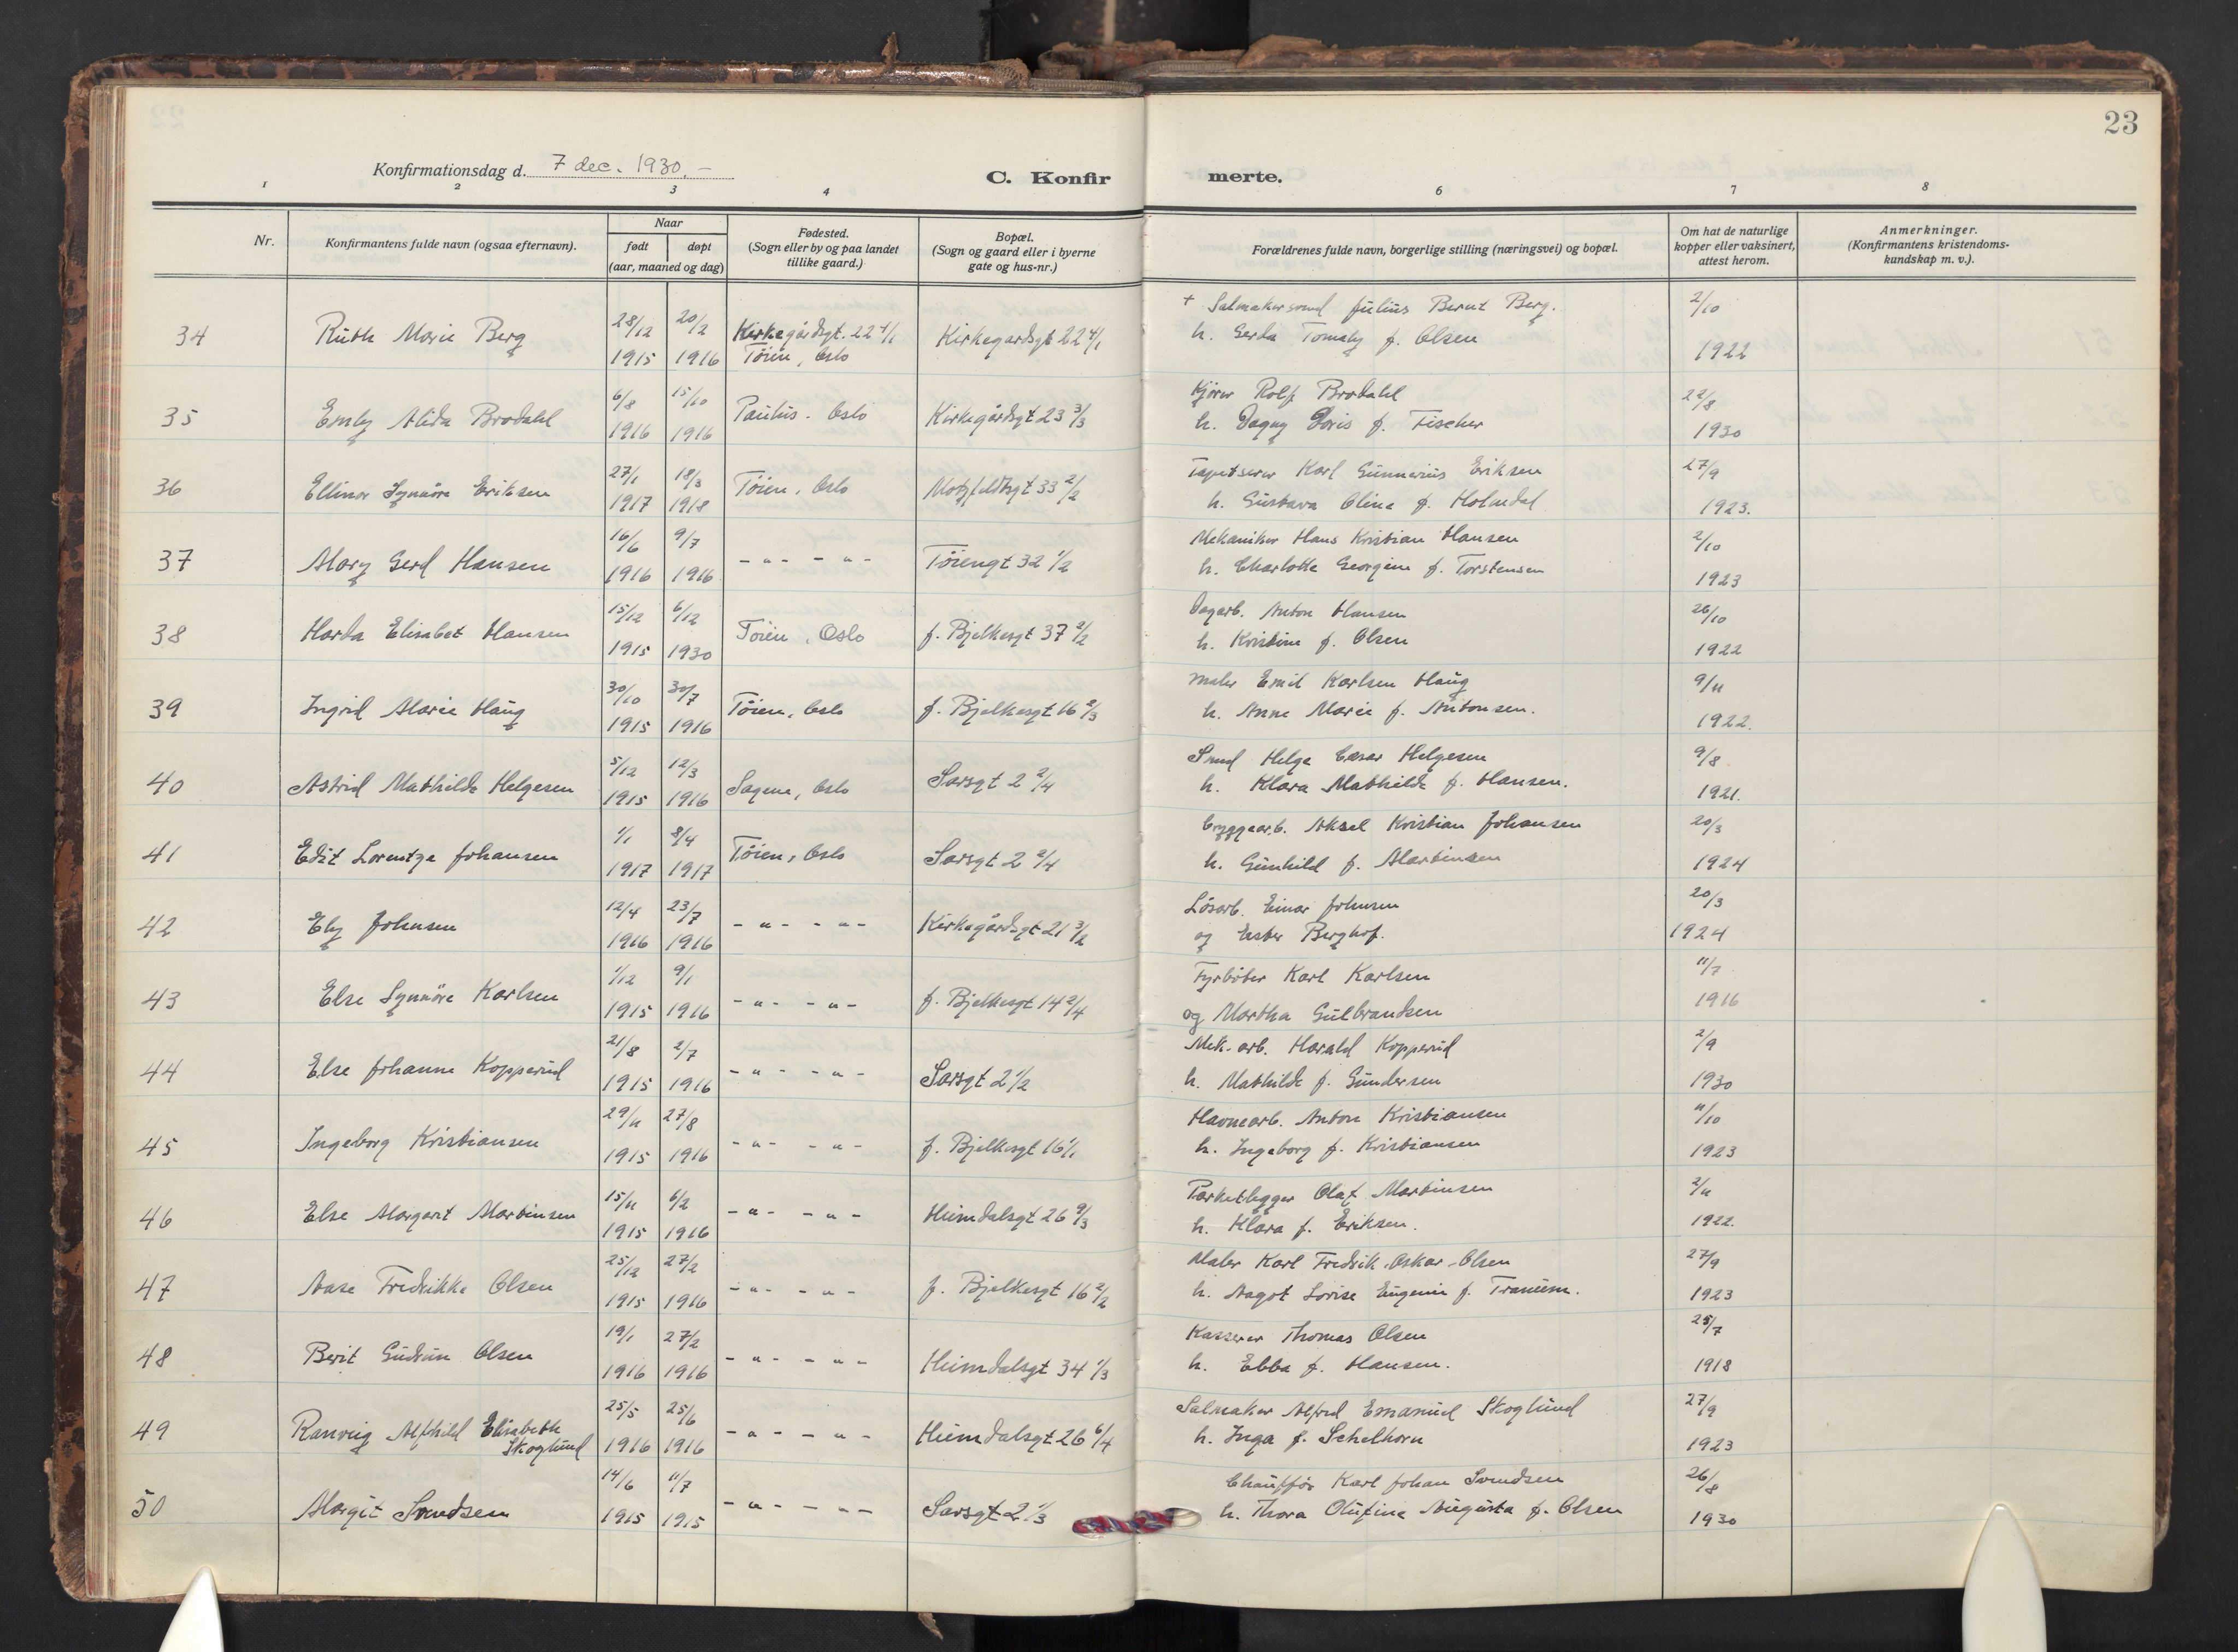 23
Konfirmationsdag d. 7 dec. 1930. –
C. Konfir merte.
1 2 3 4 6 7 8
Nr.
Konfirmantens fulde navn (ogsaa efternavn).
Naar
født døpt
(aar, maaned og dag)
Fødested.
(Sogn eller by og paa landet
tillike gaard.)
Bopæl.
(Sogn og gaard eller i byerne
gate og hus-nr.)
Forældrenes fulde navn, borgerlige stilling (næringsvei) og bopæl.
Om hat de naturlige
kopper eller vaksinert,
attest herom.
Anmerkninger.
(Konfirmantens kristendoms-
kundskap m. v.).
28/12 20/2 + Salmakersvend Julius Bernt Berg. 2/10
34 Ruth Marie Berg Kirkegårdsgt. 22 4/1 Kirkegardsgt 22 4/1 h. Gerda f. Olsen
1915 1916 Töien, Oslo 1922
6/8 15/10 Kjörer Rolf Brodahl 22/8
35 Emly Alida Brodahl Paulus. Oslo Kirkegårdsgt 23 3/3 h. Dagny Doris f. Fischer
1916 1916 1930
27/1 18/3 Tapetserer Karl Gunnerius Eriksen 27/9
36 Ellinor Synnöve Eriksen Töien, Oslo Motzfeldtsgt 33 2/2 h. Gustava Oline f. Holmdal
1917 1918 1923.
16/6 9/7 Mekaniker Hans Kristian Hansen 2/10
37 Mary Gerd Hansen – " – – " – Töiengt 32 1/2 h. Charlotte Georgine f. Torstensen
1916 1916 1923
15/12 6/12 Dagarb. Anton Hansen 26/10
38 Harda Elisabet Hansen Töien, Oslo J. Bjelkesgt 37 2/2 h. Kristine f. Olsen
1915 1930 1922
30/10 30/7 Maler Emil Karlsen Haug 9/11
39 Ingrid Marie Haug Töien, Oslo J. Bjelkesgt 16 2/3 h. Anna Marie f. Antonsen.
1915 1916 1922.
5/12 12/3 Smed Helge Cæsar Helgesen 9/8
40 Astrid Mathilde Helgesen Sagene, Oslo Sarsgt 2 2/4 h. Klara Mathilde f. Hansen.
1915 1916 1921.
1/1 8/4 Bryggearb. Aksel Kristian Johansen 20/3
41 Edit Lorentze Johansen Töien, Oslo Sarsgt 2 2/4 h. Gunhild f. Martinsen
1917 1917 1924
12/4 23/7 Lösarb. Einar Johnsen 20/3
42 Ely Johnsen – " – – " – Kirkegårdsgt 21 3/2 og Ester Berghof.
1916 1916 1924
1/12 9/1 Fyrböter Karl Karlsen 11/7
43 Else Synnöve Karlsen – " – – " – J. Bjelkesgt 14 2/4
1915 1916 og Martha Gulbrandsen 1916
21/8 2/7 Mek. arb. Harald Kopperud 2/9
44 Else Johanne Kopperud – " – – " – Sarsgt 2 1/2 h. Mathilde f. Gundersen
1915 1916 1930
29/11 27/8 Havnearb. Anton Kristiansen 11/10
45 Ingeborg Kristiansen – " – – " – J. Bjelkesgt 16 1/1 h. Ingeborg f. Kristiansen
1915 1916 1923
15/11 6/2 Parketlegger Olaf Martinsen 2/11
46 Else Margaret Martinsen – " – – " – Heimdalsgt 26 9/3 h. Klara f. Eriksen.
1915 1916 1922.
25/12 27/2 Maler Karl Fredrik Oskar Olsen 27/9
47 Aase Fredrikke Olsen – " – – " – J. Bjelkesgt 16 2/2 h. Aagot Lovise Eugenie f. Tranum.
1915 1916 1923
19/1 27/2 Kasserer Thomas Olsen 25/7
48 Berit Gudrun Olsen – " – – " – Heimdalsgt 34 1/3 h. Ebba f. Hansen.
1916 1916 1918
25/5 25/6 Salmaker Alfred Emanuel Skoglund 27/9
49 Ranveig Alfhild Elisabeth – " – – " – Heimdalsgt 26 6/4 h. Inga f. Schelhorn
Skoglund 1916 1916 1923
14/6 11/7 Chaufför Karl Johan Svendsen 26/8
50 Margit Svendsen – " – – – – Sarsgt 2 1/3 h. Thora Olufine Augusta f. Olsen
1915 1915 1930